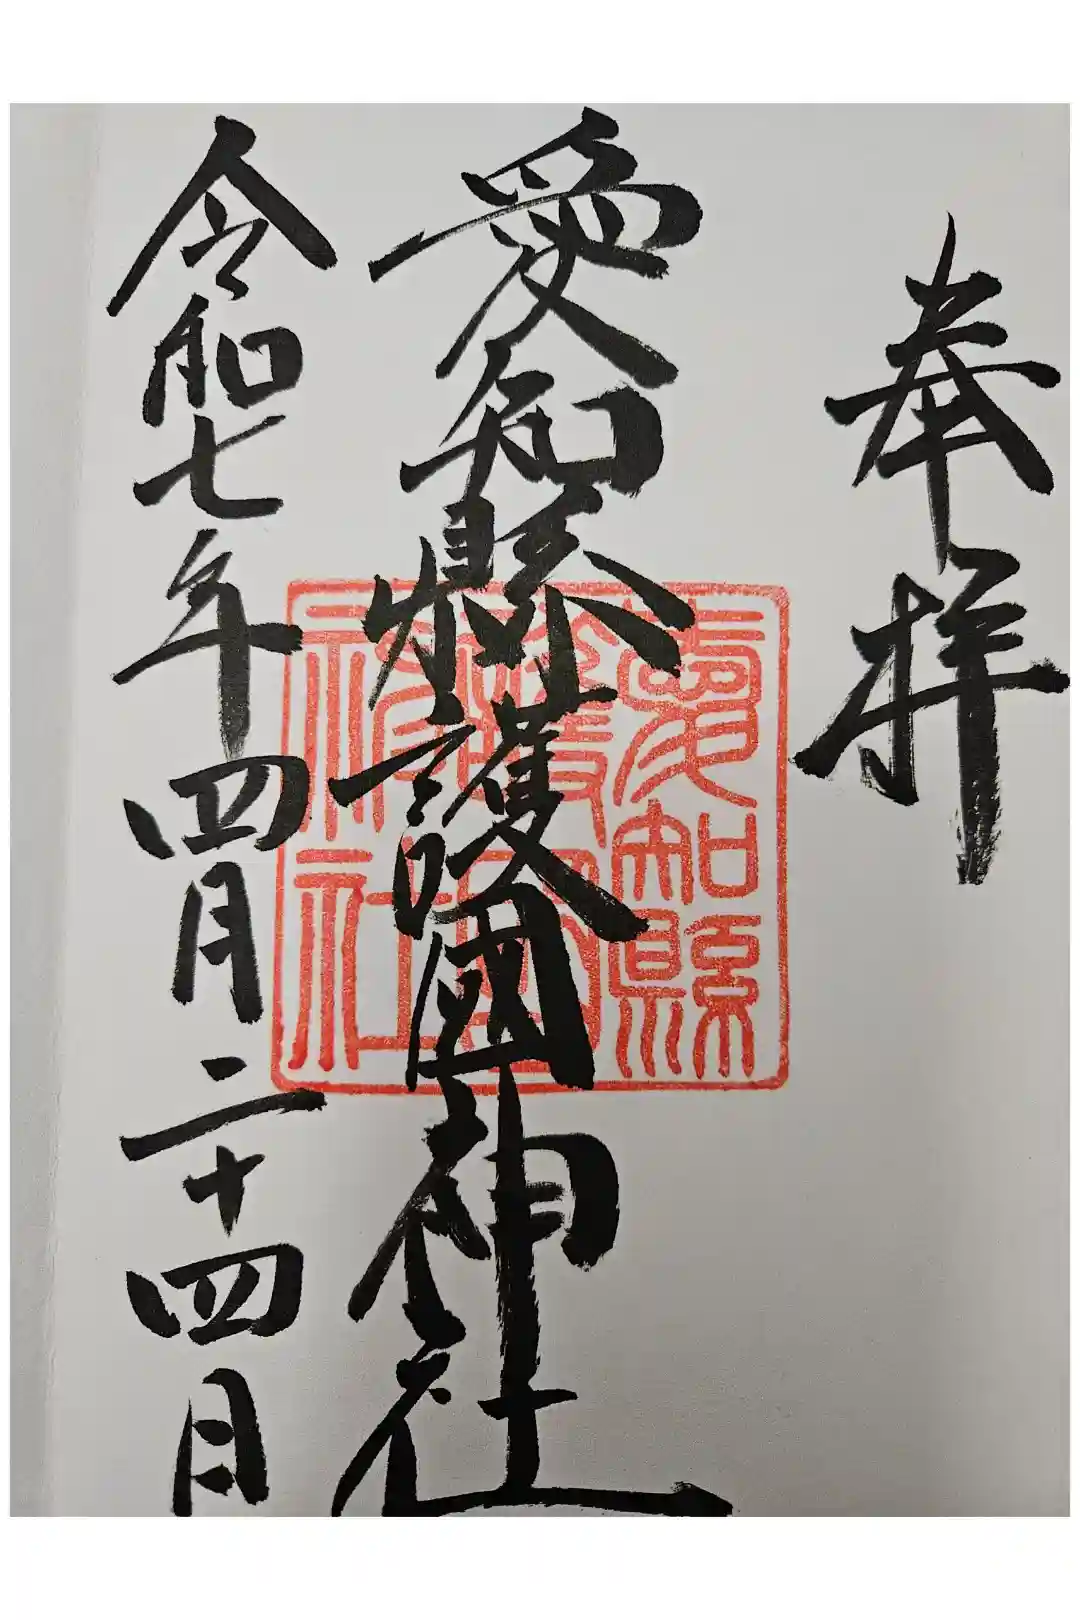 奉拝
愛知縣護國神社
令和七年四月二十四日
愛知縣
護國
神社